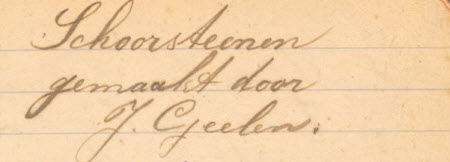 Schoorsteenen
gemaakt door
J. Geelen.